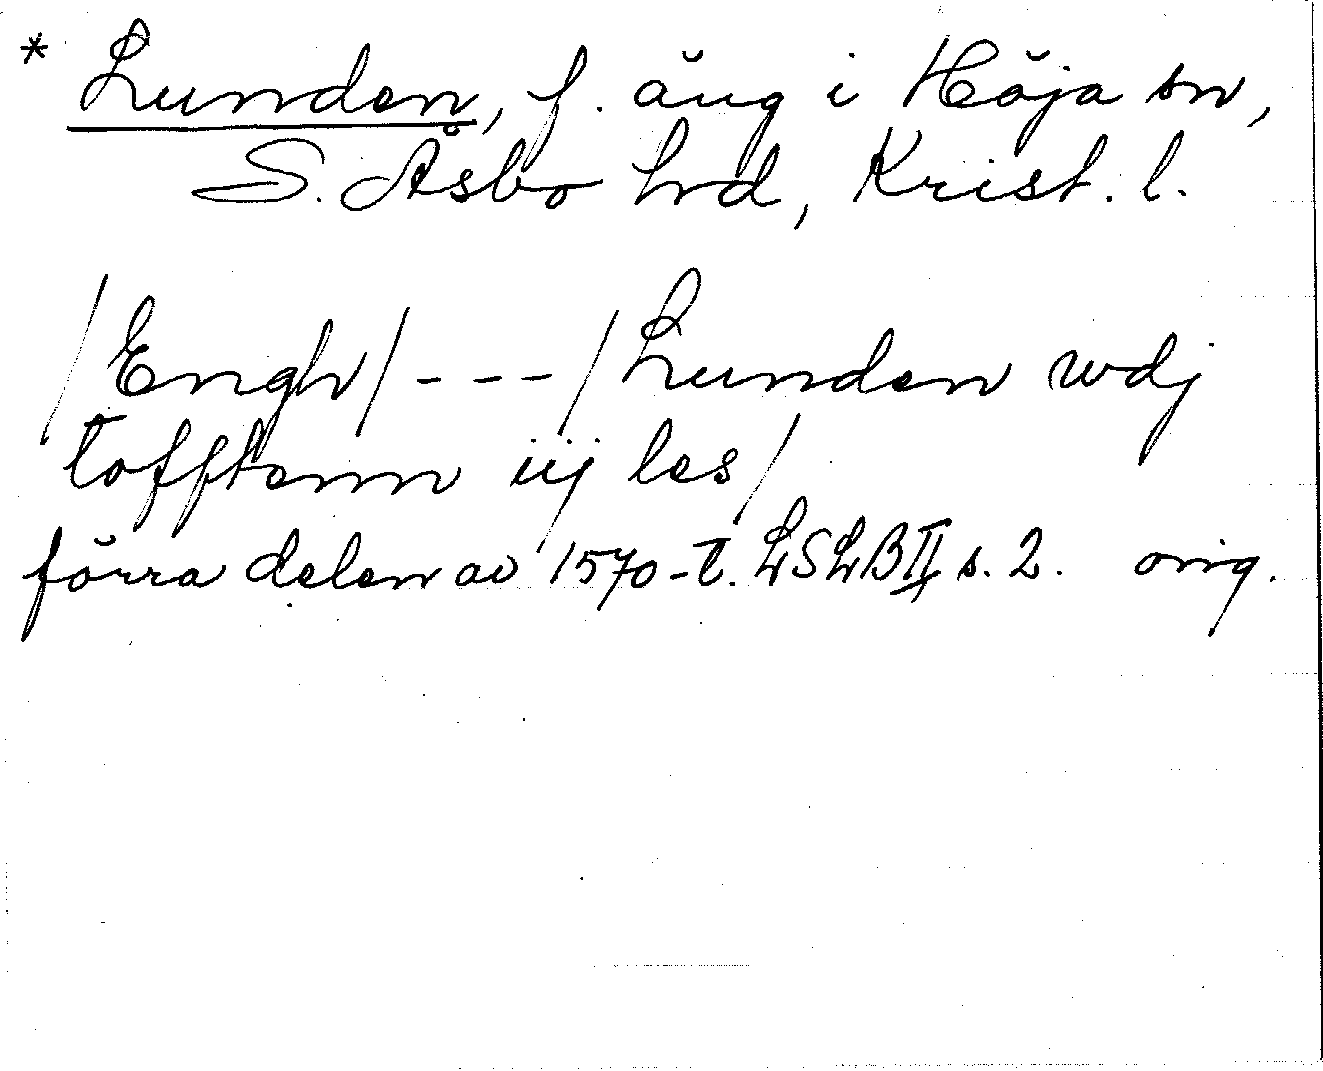 * Lunden, f. äng i Höja sn,
S. Åsbo hd, Krist. l.
/Engh/ - - - /Lunden wdj
tofftenn iij les/
förra delen av 1570-t. LSLB II s. 2. orig.